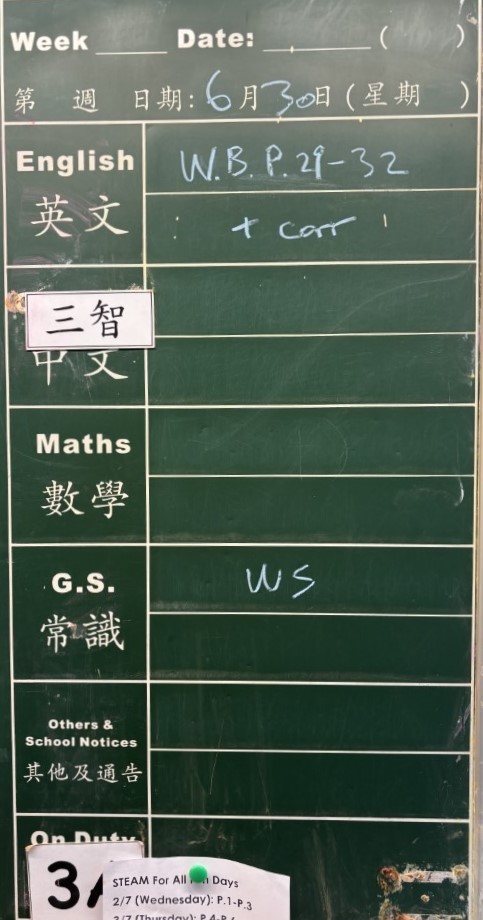 Week ____ Date: ________ ( )
第 週 日期: 6月30日 ( 星期 )
English W.B. P.29-32
英文 + corr
三智
中文
Maths
數學
G.S. WS
常識
Others &
School Notices
其他及通告
On Duty
3A
STEAM For All Fun Days
2/7 (Wednesday): P.1-P.3
3/7 (Thursday): P.4-P.6